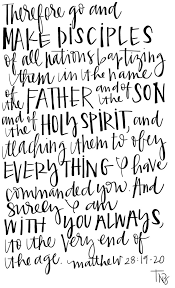 Therefore go and
MAKE DISCIPLES
of all nations baptizing
them in the name
of the FATHER and of the SON
and of the HOLY SPIRIT, and
teaching them to obey
EVERYTHING I have
commanded you. And
surely I am
WITH YOU ALWAYS,
to the very end of
the age. matthew 28:19-20